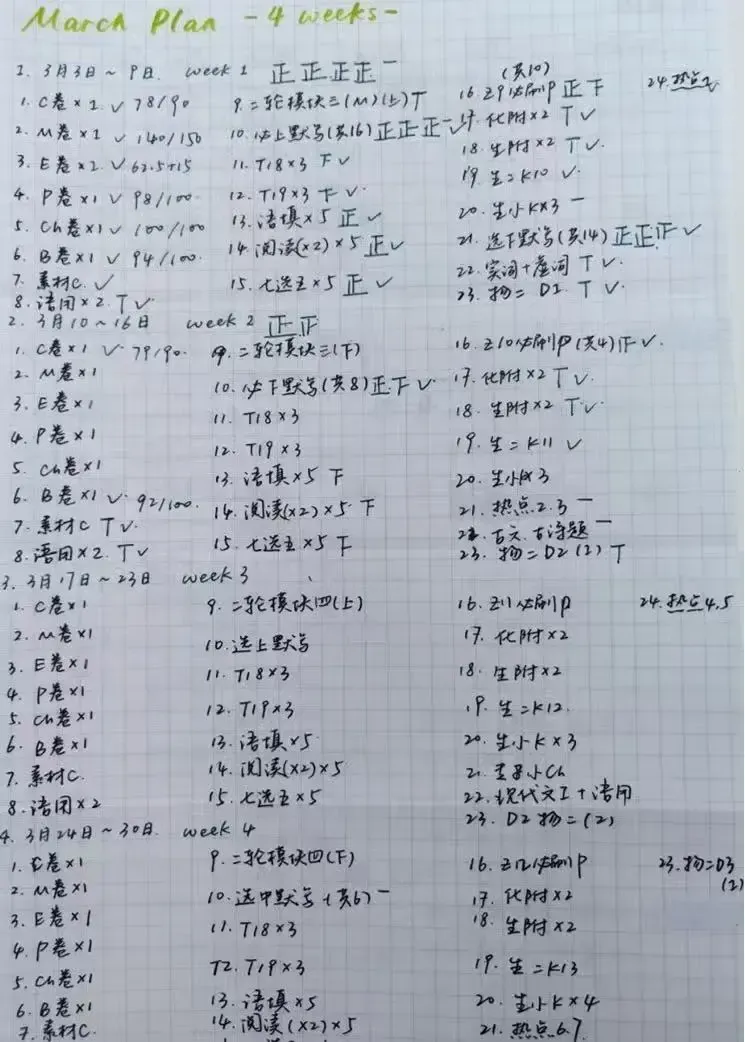 March Plan - 4 weeks -
1. 3月3日~9日 week 1 正正正正一
1. C卷×1 ✓ 78/90
2. M卷×1 ✓ 140/150
3. E卷×2 ✓ 62.5+15
4. P卷×1 ✓ 98/100
5. Ch卷×1 ✓ 100/100
6. B卷×1 ✓ 94/100
7. 素材C ✓
8. 语用×2 T ✓
9. 二轮模块三(M)(上) T
10. 必上默写(共16) 正正正一 ✓
11. T18×3 下 ✓
12. T19×3 下 ✓
13. 语填×5 正 ✓
14. 阅读(×2)×5 正 ✓
15. 七选五×5 正 ✓
(共10)
16. Z9必刷P 正下
17. 化附×2 T ✓
18. 生附×2 T ✓
19. 生二K10 ✓
20. 生小K×3 一
21. 选下默写(共14) 正正下 ✓
22. 实词+虚词 T ✓
23. 物二 D1 T ✓
24. 热点1
2. 3月10~16日 week 2 正正
1. C卷×1 ✓ 79/90
2. M卷×1
3. E卷×1
4. P卷×1
5. Ch卷×1
6. B卷×1 ✓ 92/100
7. 素材C T ✓
8. 语用×2 T ✓
9. 二轮模块三(下)
10. 必下默写(共8) 正下 ✓
11. T18×3
12. T19×3
13. 语填×5 下
14. 阅读(×2)×5 下
15. 七选五×5 下
16. Z10必刷P(共4) ✓
17. 化附×2 T ✓
18. 生附×2 T ✓
19. 生二K11 ✓
20. 生小K×3
21. 热点2.3 一
22. 古文.古诗题 一
23. 物二D2(2) T
3. 3月17日~23日 week 3
1. C卷×1
2. M卷×1
3. E卷×1
4. P卷×1
5. Ch卷×1
6. B卷×1
7. 素材C
8. 语用×2
9. 二轮模块四(上)
10. 选上默写
11. T18×3
12. T19×3
13. 语填×5
14. 阅读(×2)×5
15. 七选五×5
16. Z11必刷P
17. 化附×2
18. 生附×2
19. 生二K12
20. 生小K×3
21. 小Ch
22. 现代文I+语用
23. D2物二(2)
24. 热点4.5
4. 3月24日~30日 week 4
1. C卷×1
2. M卷×1
3. E卷×1
4. P卷×1
5. Ch卷×1
6. B卷×1
7. 素材C
9. 二轮模块四(下)
10. 选中默写(共6) 一
11. T18×3
12. T19×3
13. 语填×5
14. 阅读(×2)×5
16. Z12必刷P
17. 化附×2
18. 生附×2
19. 生二K13
20. 生小K×4
21. 热点6.7
23. 物二D3
(2)